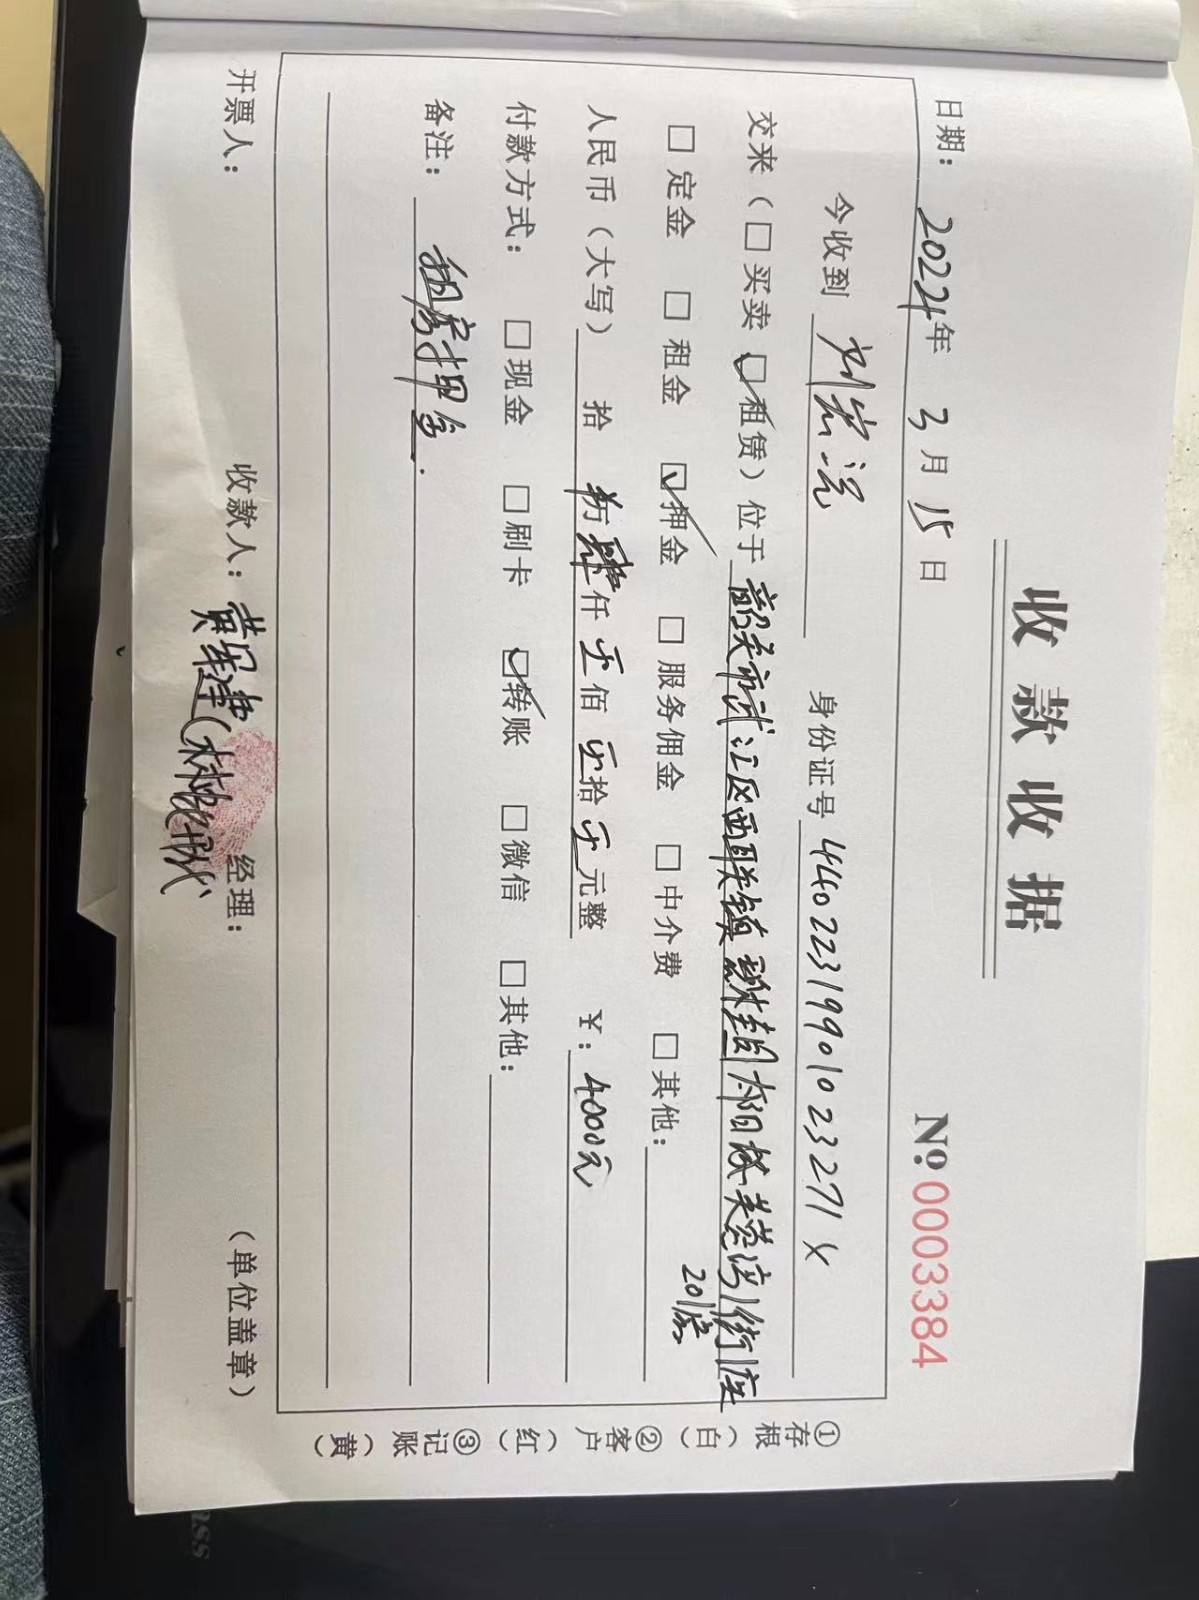 收款收据
№:0003384
日期：2022年3月15日
今收到 刘 身份证号 44022319901023271X
交来（□买卖 ☑租赁）位于 韶关市武江区西联镇 碧桂园太阳城芙蓉湾1街1座
201房
□定金 □租金 ☑押金 □服务佣金 □中介费 □其他：
人民币（大写） 拾 万 肆仟 零佰 零拾 零元整 ¥：4000元
付款方式： □现金 □刷卡 ☑转账 □微信 □其他：
备注： 租房押金.
开票人： 收款人：黄军建 经理： （单位盖章）
①存根（白） ②客户（红） ③记账（黄）
ass